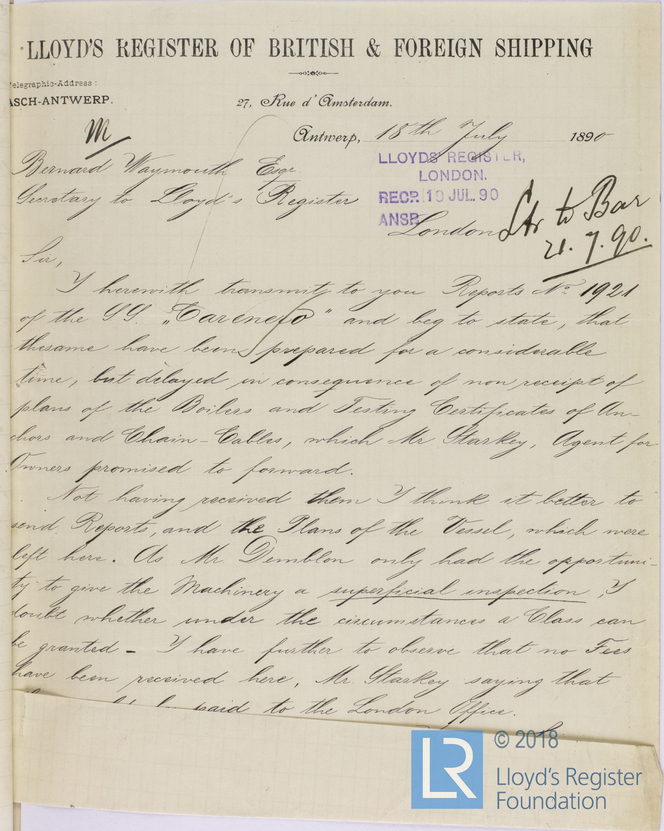 LLOYD'S REGISTER OF BRITISH & FOREIGN SHIPPING
Telegraphic-Address:
ASCH-ANTWERP.
27, Rue d'Amsterdam.
M
Antwerp, 18th July 1890
Bernard Waymouth Esqr
Secretary to Lloyd's Register
London
LLOYDS REGISTER,
LONDON.
RECP. 19 JUL. 90
ANSP
to Bar
21.7.90.
Sir,
I herewith transmit to you Reports No 1921
of the SS. „Carenero" and beg to state, that
thesame have been prepared for a considerable
time, but delayed in consequence of non receipt of
plans of the Boilers and Testing Certificates of An-
chors and Chain-Cables, which Mr Starkey, Agent for
Owners promised to forward.
Not having received them I think it better to
send Reports, and the Plans of the Vessel, which were
left here. As Mr Demblon only had the opportuni-
ty to give the Machinery a superficial inspection, I
doubt whether under the circumstances a Class can
be granted - I have further to observe that no Fees
have been received here, Mr. Starkey saying that
be paid to the London Office.
LR
© 2018
Lloyd's Register
Foundation